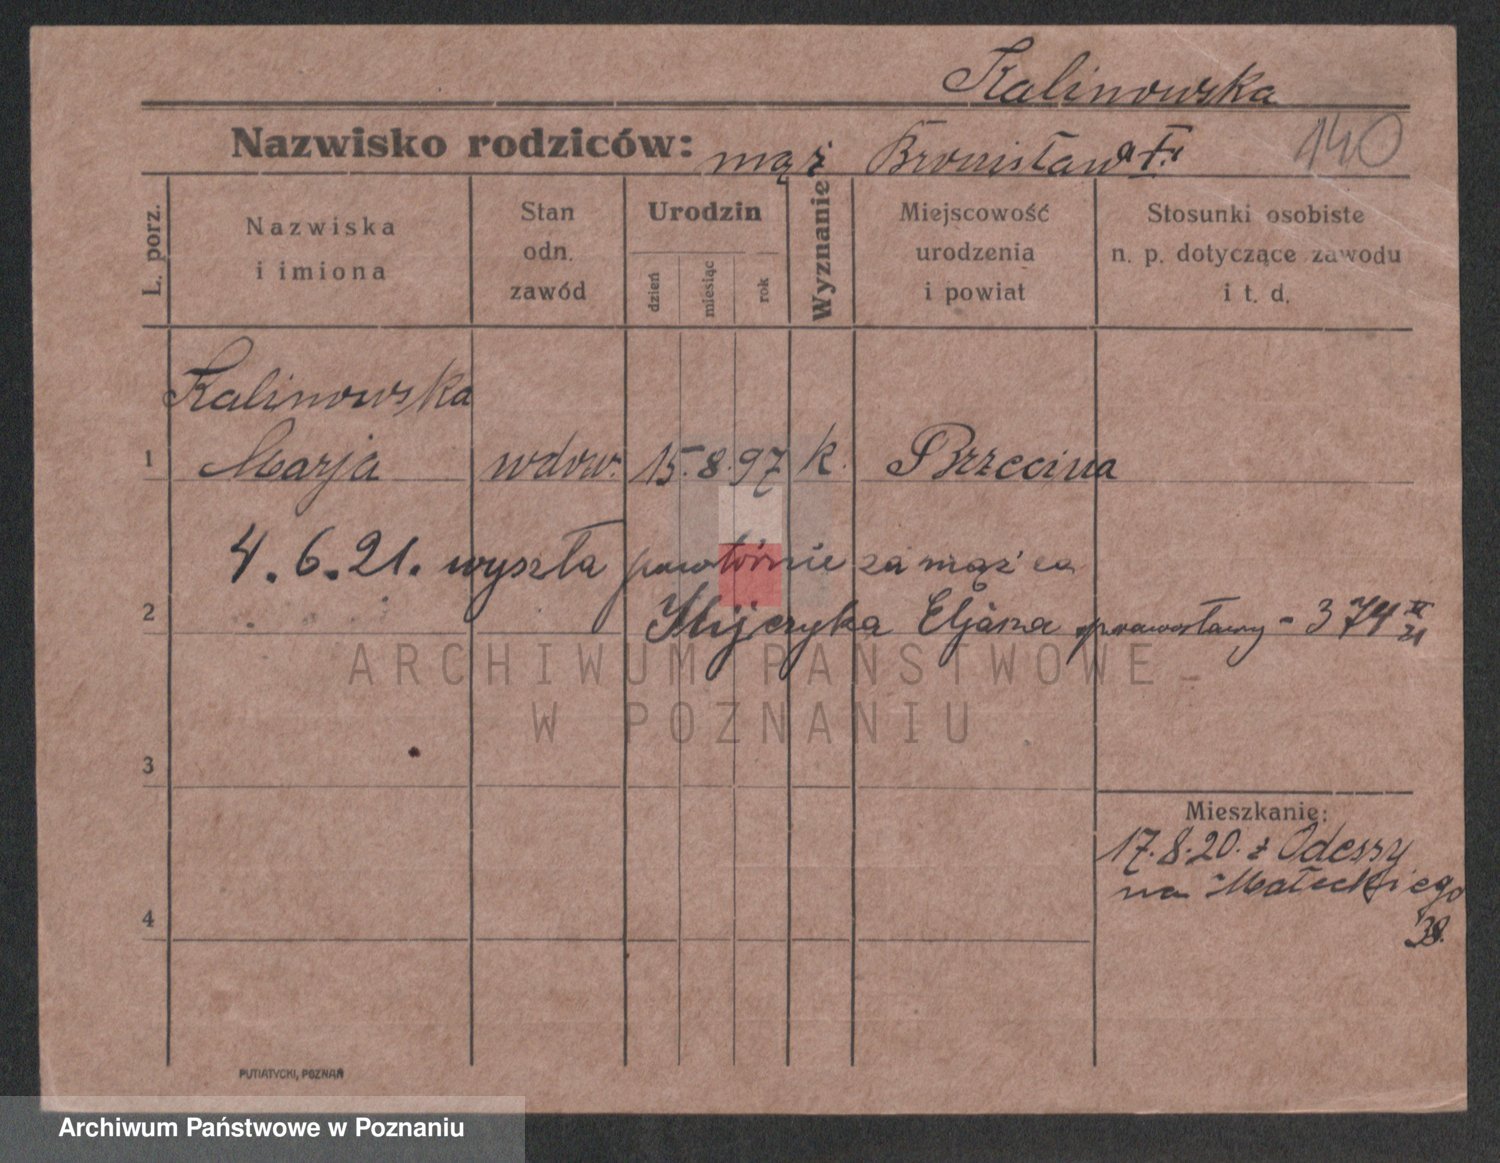 Kalinowska
Nazwisko rodziców: mąż Bronisława †.
140
L. porz.
Nazwiska
i imiona
Stan
odn.
zawód
Urodzin
dzień
miesiąc
rok
Wyznanie
Miejscowość
urodzenia
i powiat
Stosunki osobiste
n. p. dotyczące zawodu
i t. d.
Kalinowska
1 Marja wdow. 15.8.97 k.
4.6.21. wyszła powtórnie za mąż za
2 Eljasza prawosławny - 374
3
Mieszkanie:
17.8.20. z Odessy
na Małeckiego
38.
4
PUTIATYCKI, POZNAŃ
ARCHIWUM PAŃSTWOWE
W POZNANIU
Archiwum Państwowe w Poznaniu